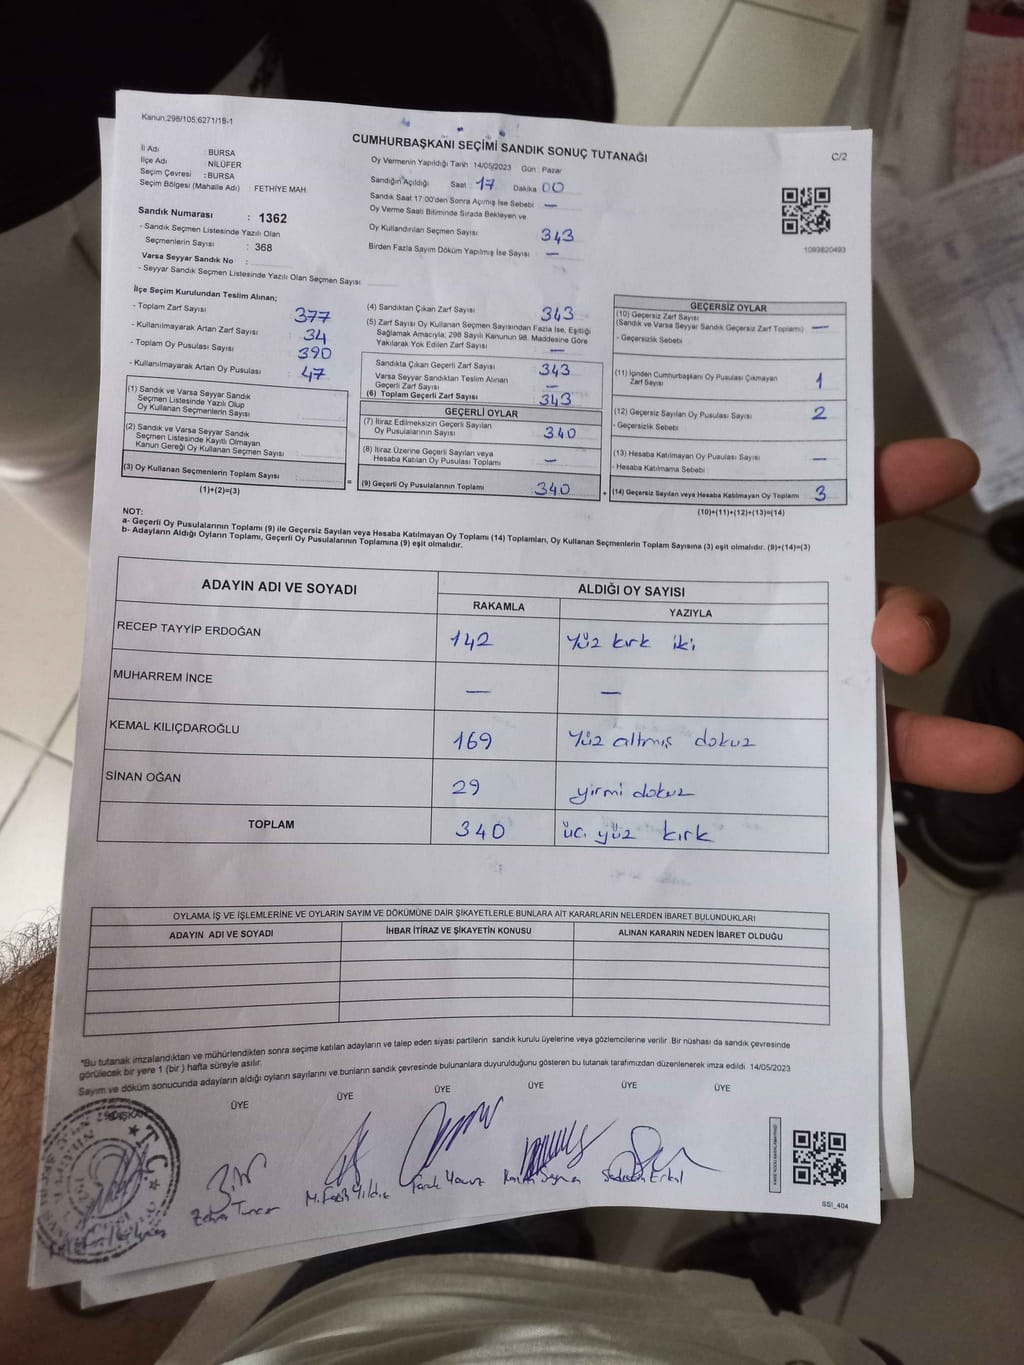 Kanun.298/105,6271/18-1
CUMHURBAŞKANI SEÇİMİ SANDIK SONUÇ TUTANAĞI
C/2
İl Adı : BURSA
İlçe Adı : NİLÜFER
Seçim Çevresi : BURSA
Seçim Bölgesi (Mahalle Adı) : FETHİYE MAH
Sandık Numarası : 1362
- Sandık Seçmen Listesinde Yazılı Olan
Seçmenlerin Sayısı : 368
Varsa Seyyar Sandık No :
- Seyyar Sandık Seçmen Listesinde Yazılı Olan Seçmen Sayısı
Oy Vermenin Yapıldığı Tarih 14/05/2023 Gün : Pazar
Sandığın Açıldığı Saat : 17 Dakika 00
Sandık Saat 17:00'den Sonra Açımış İse Sebebi : —
Oy Verme Saati Bitiminde Sırada Bekleyen ve
Oy Kullandırılan Seçmen Sayısı : 343
Birden Fazla Sayım Döküm Yapılmış İse Sayısı : —
1093820493
İlçe Seçim Kurulundan Teslim Alınan;
- Toplam Zarf Sayısı : 377
- Kullanılmayarak Artan Zarf Sayısı : 34
- Toplam Oy Pusulası Sayısı : 390
- Kullanılmayarak Artan Oy Pusulası : 47
(1) Sandık ve Varsa Seyyar Sandık
Seçmen Listesinde Yazılı Olup
Oy Kullanan Seçmenlerin Sayısı :
(2) Sandık ve Varsa Seyyar Sandık
Seçmen Listesinde Kayıtlı Olmayan
Kanun Gereği Oy Kullanan Seçmen Sayısı :
(3) Oy Kullanan Seçmenlerin Toplam Sayısı :
(1)+(2)=(3)
(4) Sandıktan Çıkan Zarf Sayısı : 343
(5) Zarf Sayısı Oy Kullanan Seçmen Sayısından Fazla İse, Eşitliği
Sağlamak Amacıyla; 298 Sayılı Kanunun 98. Maddesine Göre
Yakılarak Yok Edilen Zarf Sayısı : —
Sandıkta Çıkan Geçerli Zarf Sayısı : 343
Varsa Seyyar Sandıktan Teslim Alınan
Geçerli Zarf Sayısı : —
(6) Toplam Geçerli Zarf Sayısı : 343
GEÇERLİ OYLAR
(7) İtiraz Edilmeksizin Geçerli Sayılan
Oy Pusulalarının Sayısı : 340
(8) İtiraz Üzerine Geçerli Sayılan veya
Hesaba Katılan Oy Pusulası Toplamı : —
(9) Geçerli Oy Pusulalarının Toplamı : 340
GEÇERSİZ OYLAR
(10) Geçersiz Zarf Sayısı
(Sandık ve Varsa Seyyar Sandık Geçersiz Zarf Toplamı) : —
- Geçersizlik Sebebi :
(11) İçinden Cumhurbaşkanı Oy Pusulası Çıkmayan
Zarf Sayısı : 1
(12) Geçersiz Sayılan Oy Pusulası Sayısı : 2
- Geçersizlik Sebebi :
(13) Hesaba Katılmayan Oy Pusulası Sayısı : —
- Hesaba Katılmama Sebebi :
(14) Geçersiz Sayılan veya Hesaba Katılmayan Oy Toplamı : 3
(10)+(11)+(12)+(13)=(14)
NOT:
a- Geçerli Oy Pusulalarının Toplamı (9) ile Geçersiz Sayılan veya Hesaba Katılmayan Oy Toplamı (14) Toplamları, Oy Kullanan Seçmenlerin Toplam Sayısına (3) eşit olmalıdır. (9)+(14)=(3)
b- Adayların Aldığı Oyların Toplamı, Geçerli Oy Pusulalarının Toplamına (9) eşit olmalıdır.
ADAYIN ADI VE SOYADI ALDIĞI OY SAYISI
RAKAMLA YAZIYLA
RECEP TAYYİP ERDOĞAN 142 Yüz kırk iki
MUHARREM İNCE — —
KEMAL KILIÇDAROĞLU 169 Yüz altmış dokuz
SİNAN OĞAN 29 yirmi dokuz
TOPLAM 340 üç yüz kırk
OYLAMA İŞ VE İŞLEMLERİNE VE OYLARIN SAYIM VE DÖKÜMÜNE DAİR ŞİKAYETLERLE BUNLARA AİT KARARLARIN NELERDEN İBARET BULUNDUKLARI
ADAYIN ADI VE SOYADI İHBAR İTİRAZ VE ŞİKAYETİN KONUSU ALINAN KARARIN NEDEN İBARET OLDUĞU
*Bu tutanak imzalandıktan ve mühürlendikten sonra seçime katılan adayların ve talep eden siyasi partilerin sandık kurulu üyelerine veya gözlemcilerine verilir. Bir nüshası da sandık çevresinde
görülecek bir yere 1 (bir) hafta süreyle asılır.
Sayım ve döküm sonucunda adayların aldığı oyların sayılarını ve bunların sandık çevresinde bulunanlara duyurulduğunu gösteren bu tutanak tarafımızdan düzenlenerek imza edildi. 14/05/2023
ÜYE ÜYE ÜYE ÜYE ÜYE ÜYE
M. Fatih Yıldız
Faruk Yavuz
T.C.
SSI_404